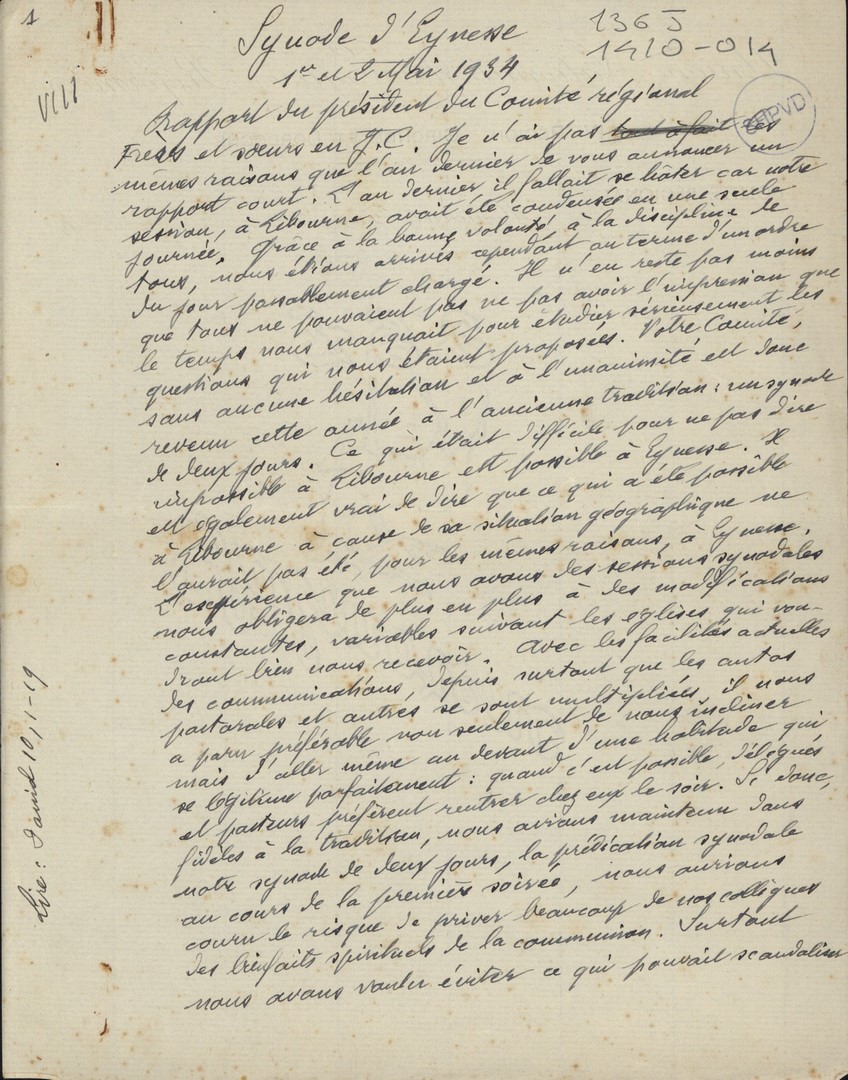 1
VIII
Synode d'Eynesse
136 J
1410-014
1er et 2 Mai 1934
Rapport du président du Comité régional
SHPVD
Frères et sœurs en J.C. Je n'ai pas tout à fait les
mêmes raisons que l'an dernier de vous annoncer un
rapport court. L'an dernier il fallait se hâter car notre
session, à Libourne, avait été condensée en une seule
journée. Grâce à la bonne volonté à la discipline de
tous, nous étions arrivés cependant au terme d'un ordre
du jour passablement chargé. Il n'en reste pas moins
que tous ne pouvaient pas ne pas avoir l'impression que
le temps nous manquait pour étudier sérieusement les
questions qui nous étaient proposées. Votre Comité,
sans aucune hésitation et à l'unanimité est donc
revenu cette année à l'ancienne tradition : un synode
de deux jours. Ce qui était difficile pour ne pas dire
impossible à Libourne est possible à Eynesse. Il
est également vrai de dire que ce qui a été possible
à Libourne à cause de sa situation géographique ne
l'aurait pas été, pour les mêmes raisons, à Eynesse.
L'expérience que nous avons des sessions synodales
nous obligera de plus en plus à des modifications
constantes, variables suivant les églises qui vou-
dront bien nous recevoir. Avec les facilités actuelles
des communications, depuis surtout que les autos
pastorales et autres se sont multipliées, il nous
a paru préférable non seulement de nous incliner
mais d'aller même au devant d'une habitude qui
se légitime parfaitement : quand c'est possible, délégués
et pasteurs préfèrent rentrer chez eux le soir. Si donc,
fidèles à la tradition, nous avions maintenu dans
notre synode de deux jours, la prédication synodale
au cours de la première soirée, nous aurions
couru le risque de priver beaucoup de nos collègues
des bienfaits spirituels de la communion. Surtout
nous avons voulu éviter ce qui pouvait scandaliser
Lire : Daniel 10, 1-19